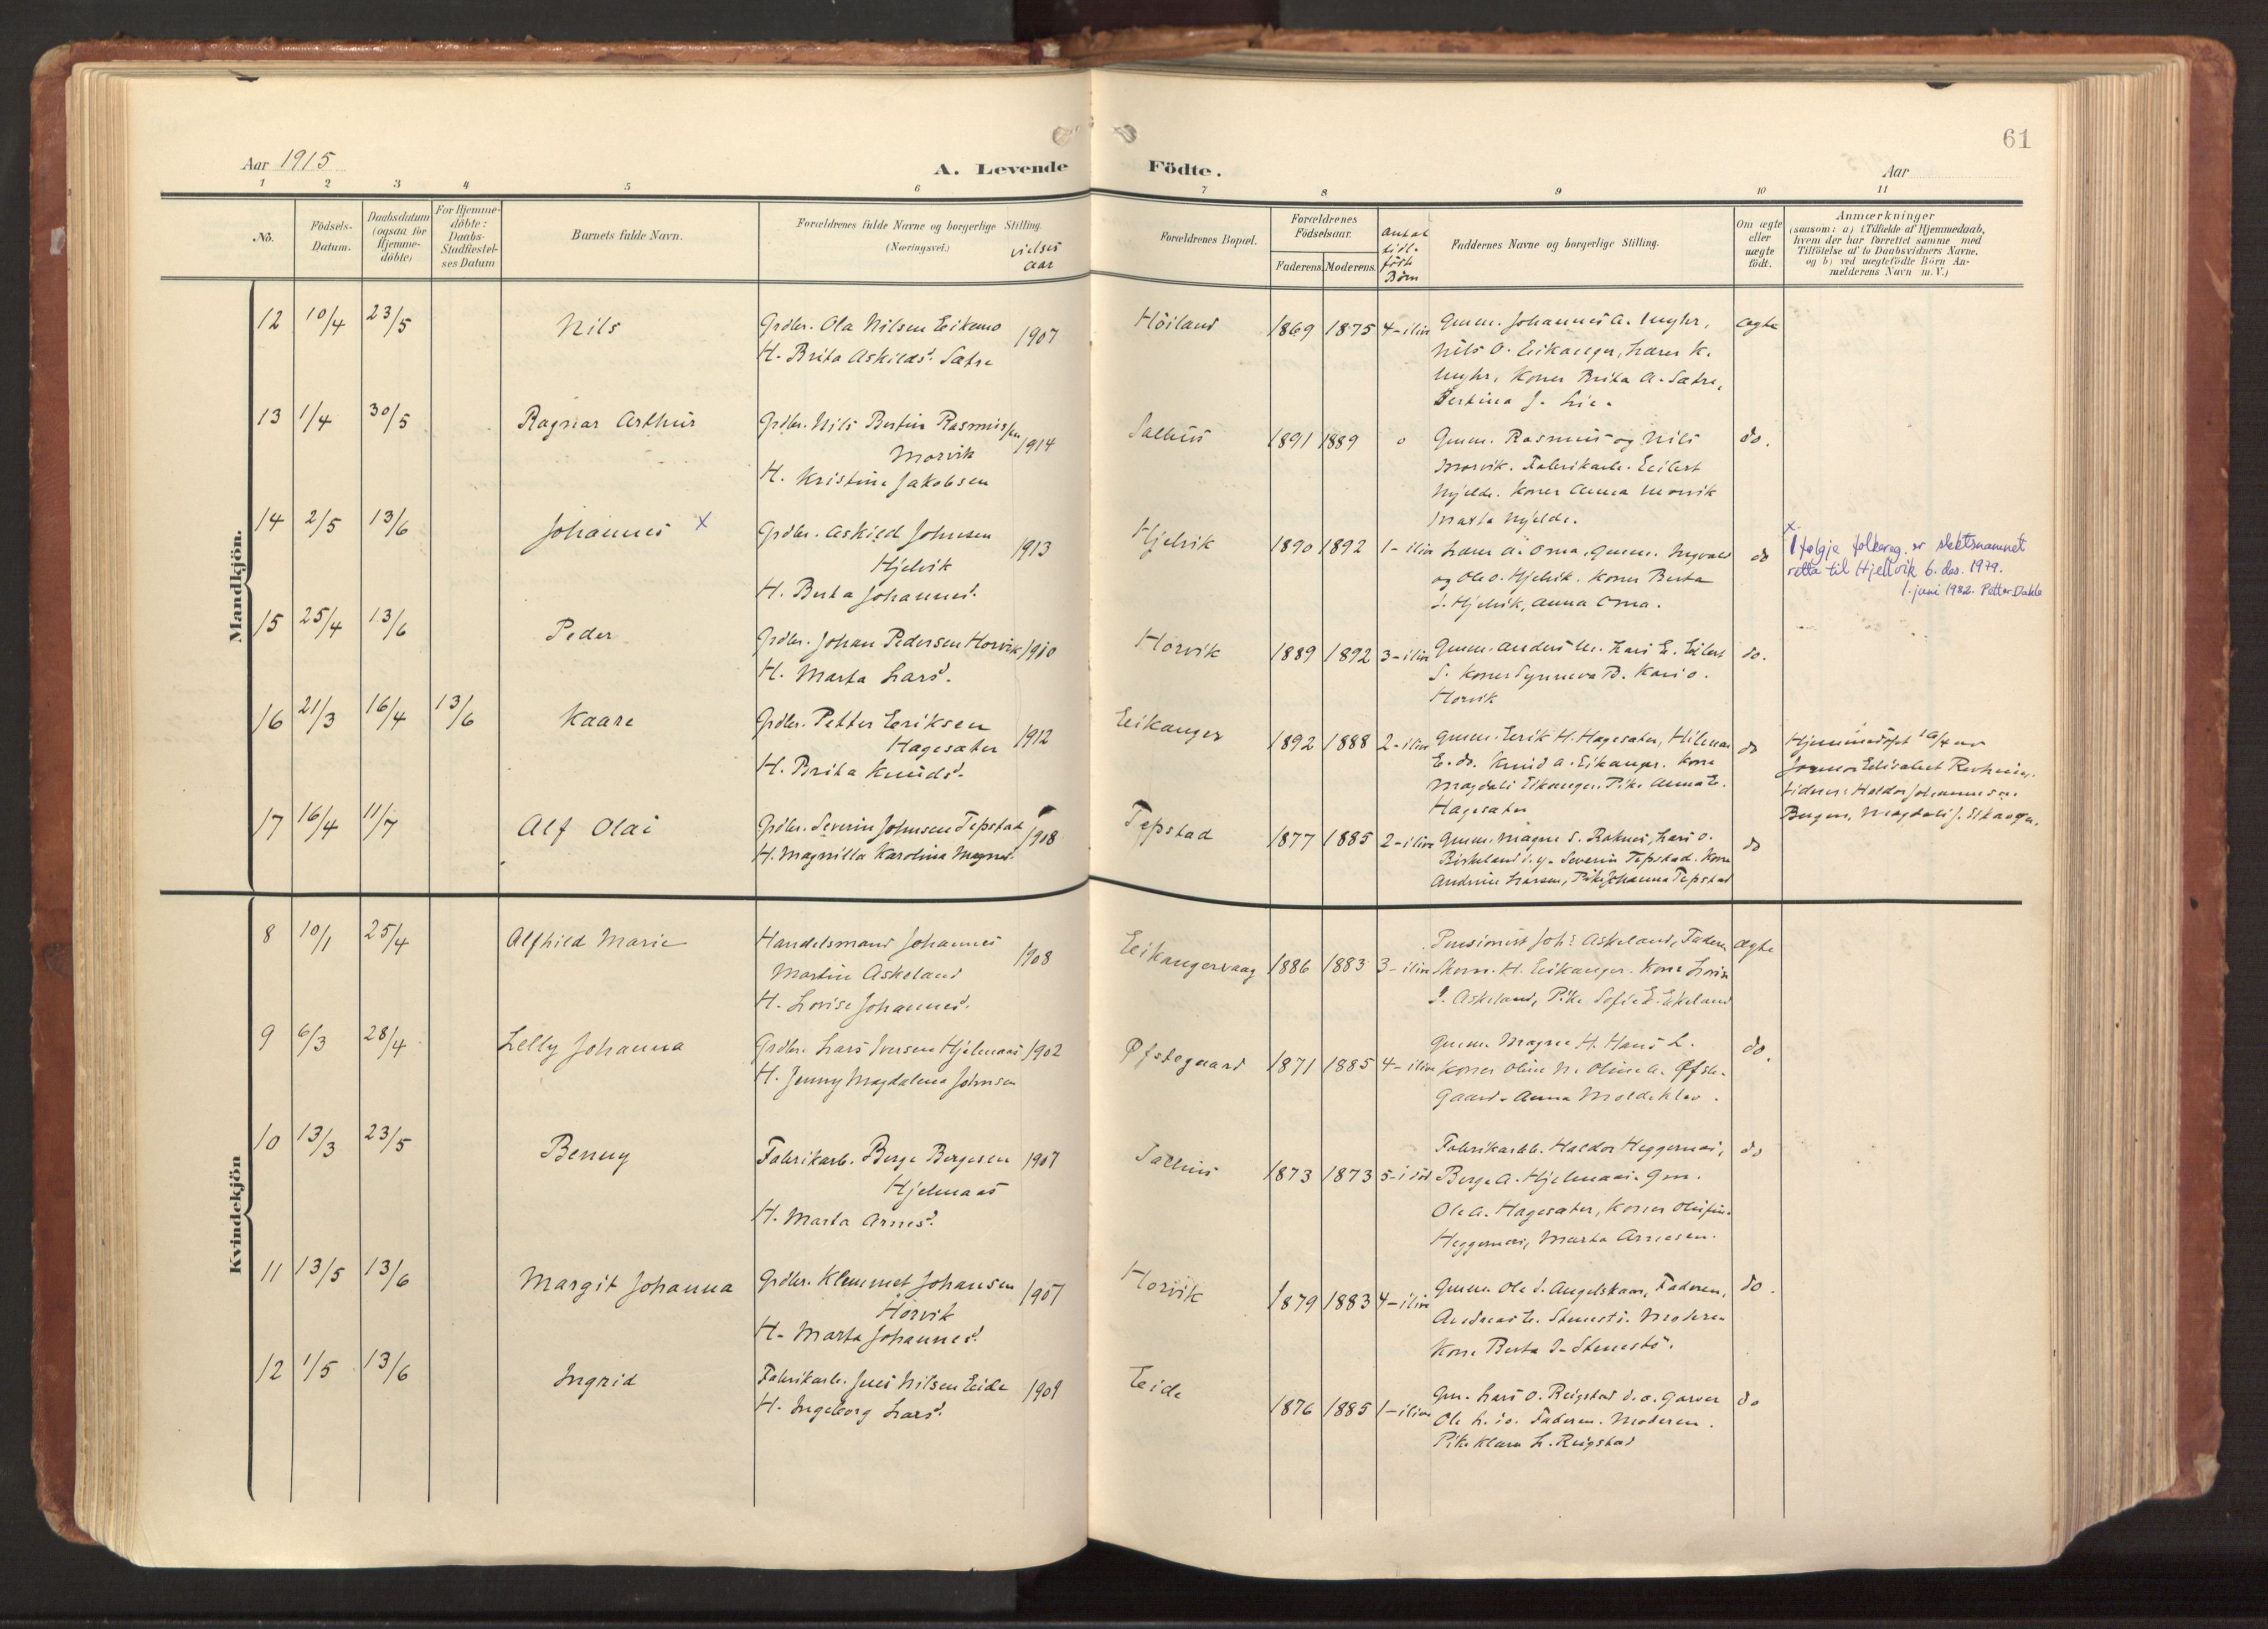 61
Aar 1915
A. Levende Födte.
Aar
1 2 3 4 5 6 7 8 9 10 11
No.
Födsels-Datum.
Daabsdatum (ogsaa for Hjemme-döbte)
For Hjemme-döbte: Daabs-Stadfæstel-ses Datum
Barnets fulde Navn.
Forældrenes fulde Navne og borgerlige Stilling.
(Næringsvei.)
vielses aar
Forældrenes Bopæl.
Forældrenes Födselsaar.
Faderens. Moderens.
Antal tidl. födte Börn
Faddernes Navne og borgerlige Stilling.
Om ægte eller uægte födt.
Anmærkninger
(saasom: a) i Tilfælde af Hjemmedaab,
hvem der har forrettet samme med
Tilföielse af to Daabsvidners Navne,
og b) ved uægtefödte Börn An-
melderens Navn m.V.)
Mandkjön.
12 10/4 23/5 Nils
Grdbr. Ola Nilsen Eikemo
H. Brita Askildsd. Sætre
1907
Höiland 1869 1875 4-ilive
Gmm. Johannes A. Myhr,
Nils O. Eikanger, Lærer K.
Myhr, Koner Brita A. Sætre,
Bertina J. Lie.
ægte
13 1/4 30/5 Ragnar Arthur
Grdbr. Nils Bertin Rasmussen
Morvik
H. Kristine Jakobsen
1914
Salhus 1891 1889 0
Gmm. Rasmus og Nils
Morvik. Fabrikarb. Eilert
Mjelde. Koner Anna Morvik
Marta Mjelde.
do.
14 2/5 13/6 Johannes x
Grdbr. Askild Johnsen
Hjelvik
H. Berta Johannesd.
1913
Hjelvik 1890 1892 1-ilive
Lars A. Oma. Gmm. Ingvald
og Ole O. Hjelvik. Koner Berta
J. Hjelvik, Anna Oma.
do
x
I følgje folkereg. er slektsnamnet
retta til Hjellvik 6. des. 1979.
1. juni 1982. Petter Dahle
15 25/4 13/6 Peder
Grdbr. Johan Pedersen Horvik
H. Marta Larsd.
1910
Horvik 1889 1892 3-ilive
Gmm. Anders M. Lars E. Eilert
S. Koner Synneva B. Kari O.
Horvik
do.
16 21/3 16/4 13/6 Kaare
Grdbr. Petter Eriksen
Hagesæter
H. Brita Knudsd.
1912
Eikanger 1892 1888 2-ilive
Gmm. Erik H. Hagesæter, Hilmar
E. do. Knud A. Eikanger. Kone
Magdali Eikanger. Pike Anna E.
Hagesæter
do
Hjemmedöpt 16/4 av
Jormor Elisabet
Haldor Johannesen
Bergen, Magdali J. Eikanger.
17 16/4 11/7 Alf Olai
Grdbr. Severin Johnsen Tepstad
H. Magnilla Karolina Magnesd.
1908
Tepstad 1877 1885 2-ilive
Gmm. Magne S. Roknes, Lars O.
Birkeland i. y. Severin Tepstad. Kone
Andrine Larsen, Pike Johanna Tepstad
do
Kvindekjön
8 10/1 25/4 Alfhild Marie
Handelsmand Johannes
Martin Askeland
H. Lovise Johannesd.
1908
Eikangervaag 1886 1883 3-ilive
Pensionist Johs Askeland, Faderen
H. Eikanger. Kone Lovise
J. Askeland, Pike Sofie E. Eikeland
ægte
9 6/3 28/4 Lelly Johanna
Grdbr. Lars Iversen Hjelmaas
H. Jenny Magdalena Johnsen
1902
Øfstegaard 1871 1885 4-ilive
Gmm. Magne H. Hans L.
Koner Oline N. Oline A. Øfste-
gaard. Anna Moldeklev.
do.
10 13/3 23/5 Benny
Fabrikarb. Berge Bergesen
Hjelmaas
H. Marta Arnesd.
1907
Salhus 1873 1873 5-1 död
Fabrikarbb. Haldor Heggernæs,
Berge A. Hjelmaas. Gm.
Ole A. Hagesæter, Koner Olufine
Heggernæs, Marta Arnesen.
do
11 13/5 13/6 Margit Johanna
Grdbr. Klemmet Johansen
Horvik
H. Marta Johannesd.
1907
Horvik 1879 1883 4-ilive
Gmm. Ole I. Angelskaar, Faderen,
Andreas E. Stenestö. Moderen
Kone Berta I. Stenestö.
do.
12 1/5 13/6 Ingrid
Fabrikarb. Jens Nilsen Eide
H. Ingeborg Larsd.
1909
Eide 1876 1885 1-ilive
Gm. Lars O. Reigstad d.o. Garver
Ole L. do. Faderen. Moderen.
Pike Klara L. Reigstad
do